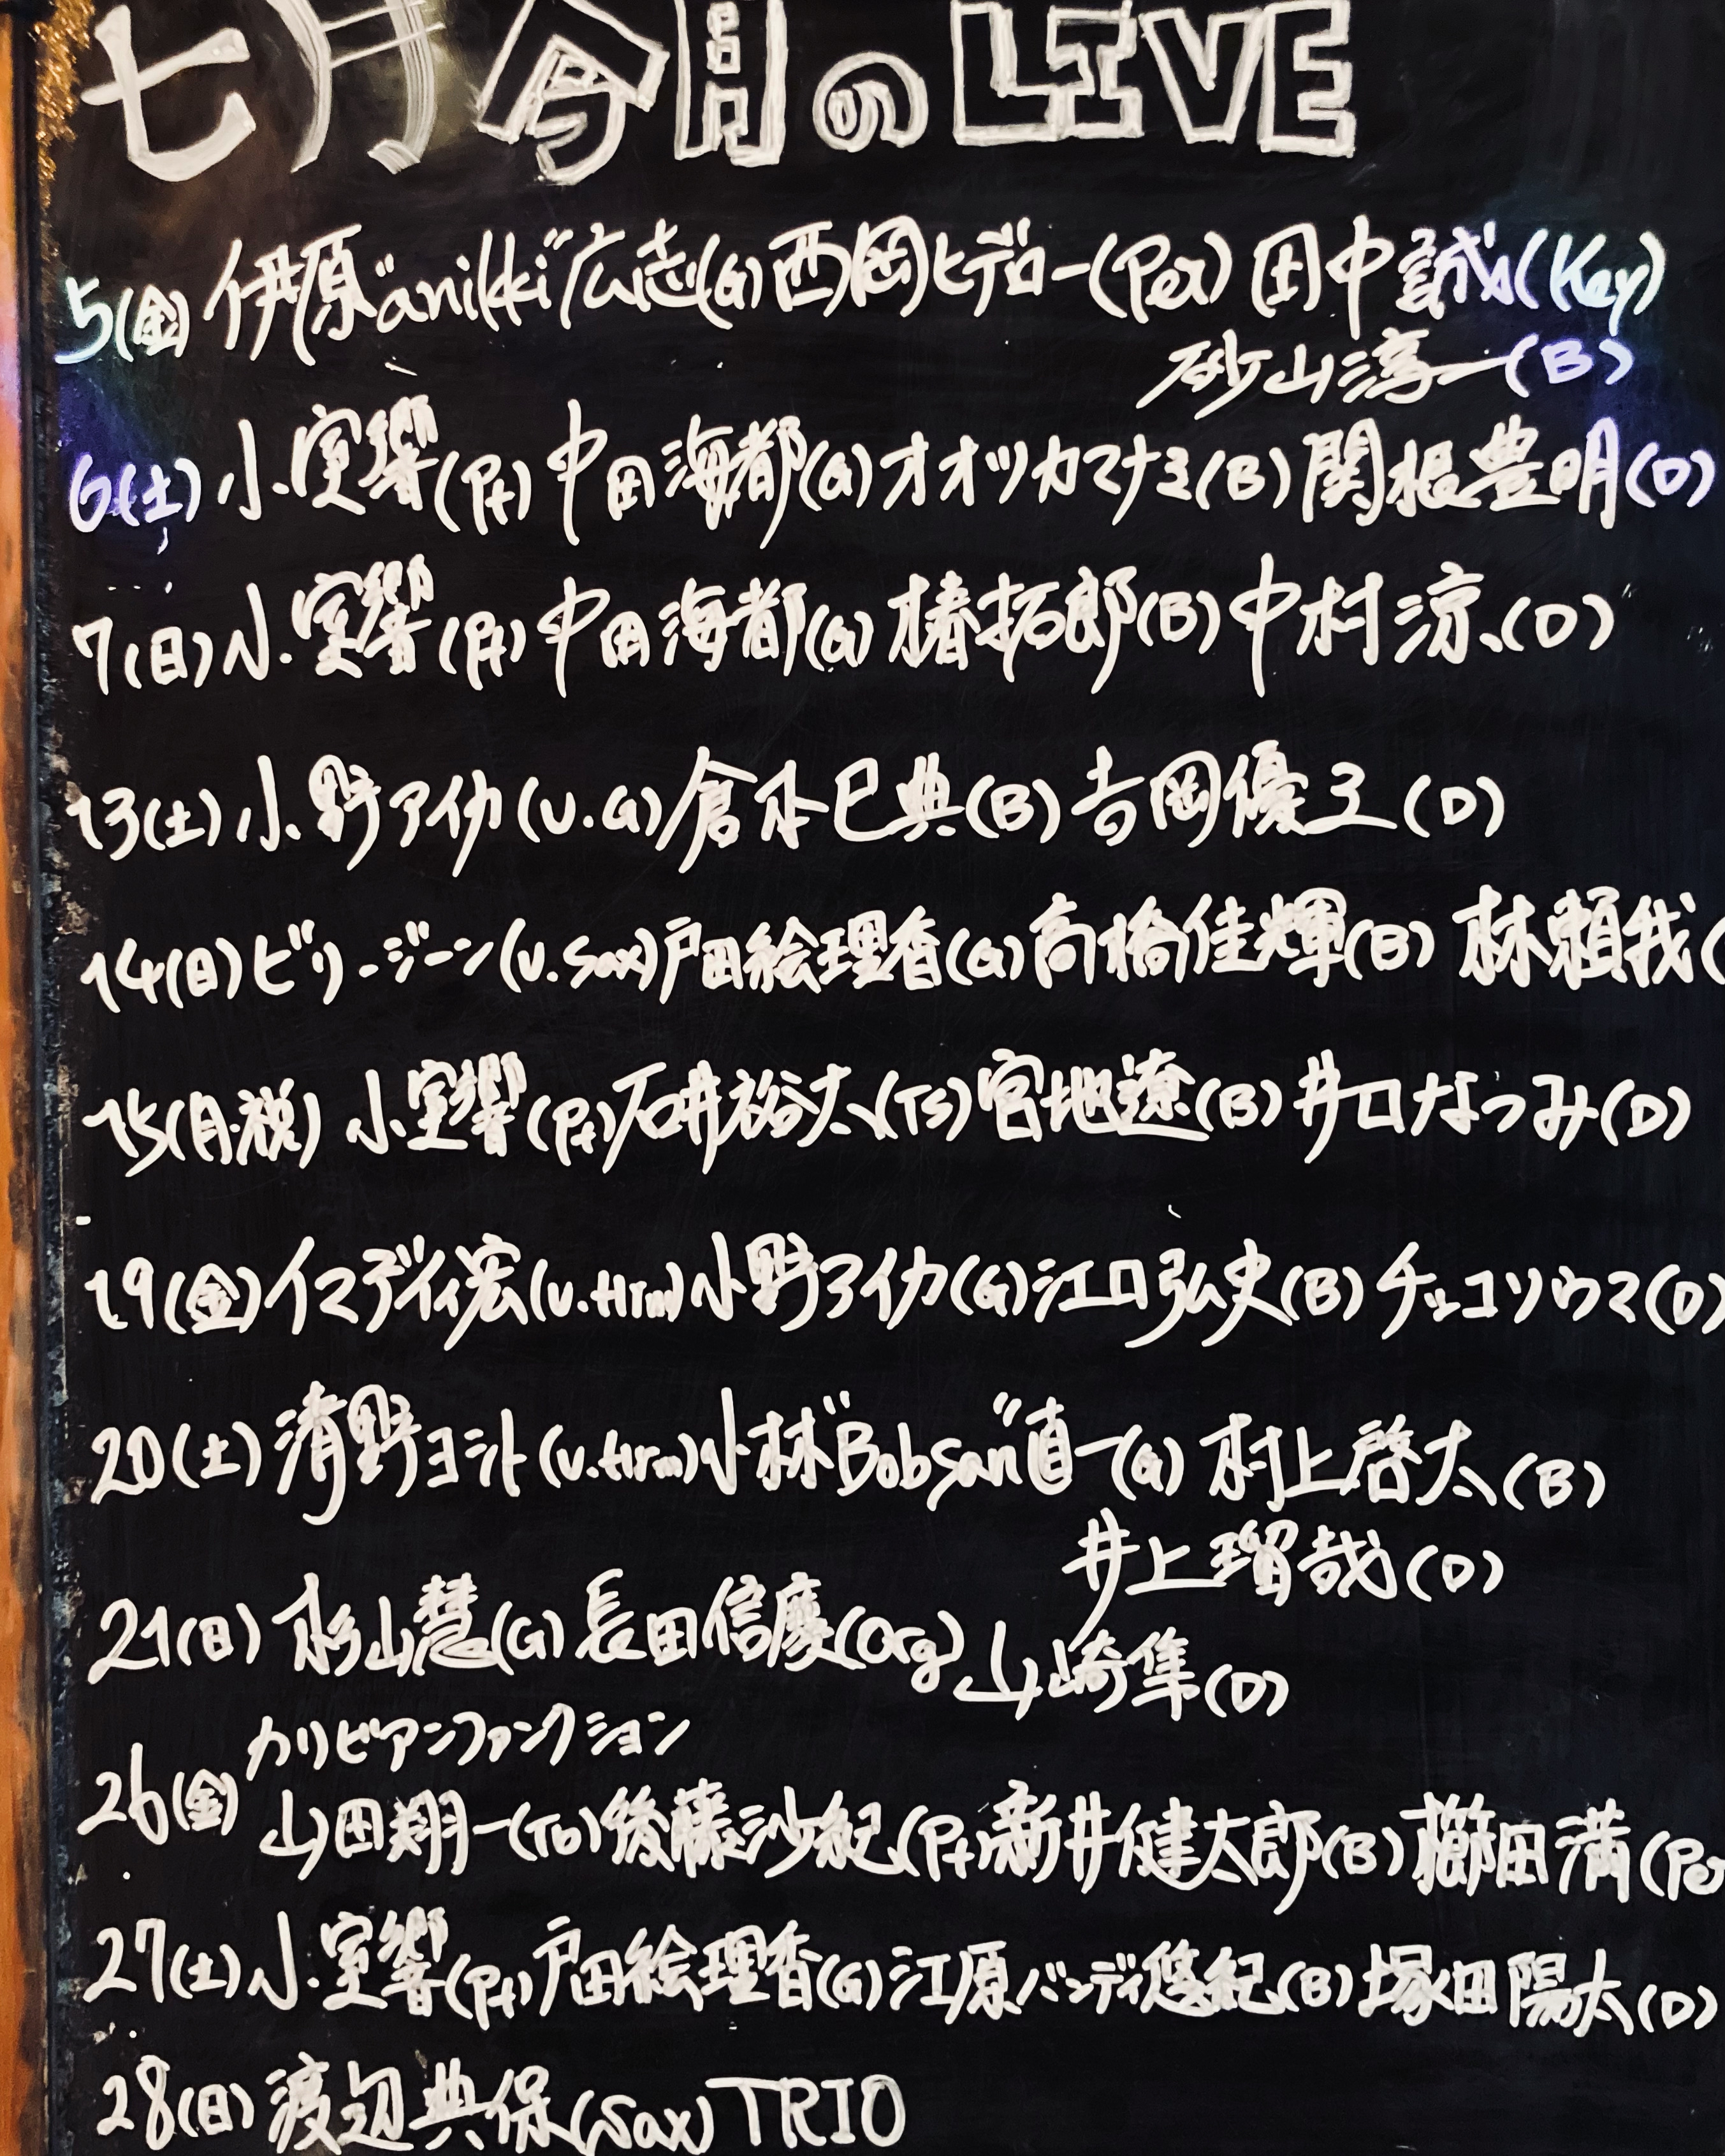 七月 今月のLIVE
5(金) 伊原"anikki"広志(G) 西岡ヒデロー(Per) 田中誠(Key)
砂山淳一(B)
6(土) 小室響(Pf) 中田海都(G) オオツカマナミ(B) 関根豊明(D)
7(日) 小室響(Pf) 中田海都(G) 椿拓郎(B) 中村涼(D)
13(土) 小野アイカ(V.G) 倉本巳典(B) 吉岡優三(D)
14(日) ビリージーン(V.Sax) 戸田絵理香(G) 高橋佳輝(B) 林頼我(
15(月・祝) 小室響(Pf) 石井裕太(TS) 宮地遼(B) 井口なつみ(D)
19(金) イマディ宏(V.Hrm) 小野アイカ(G) 江口弘史(B) チッコソウマ(D)
20(土) 清野ヨシト(V.Hrm) 小林"Bobsan"直一(G) 村上啓太(B)
井上瑠哉(D)
21(日) 杉山慧(G) 長田信慶(Org) 山崎隼(D)
カリビアンファンクション
26(金) 山田翔一(Tb) 後藤沙紀(Pf) 新井健太郎(B) 櫛田満(Per
27(土) 小室響(Pf) 戸田絵理香(G) 江原バンディ悠紀(B) 塚田陽太(D)
28(日) 渡辺典保(Sax) TRIO